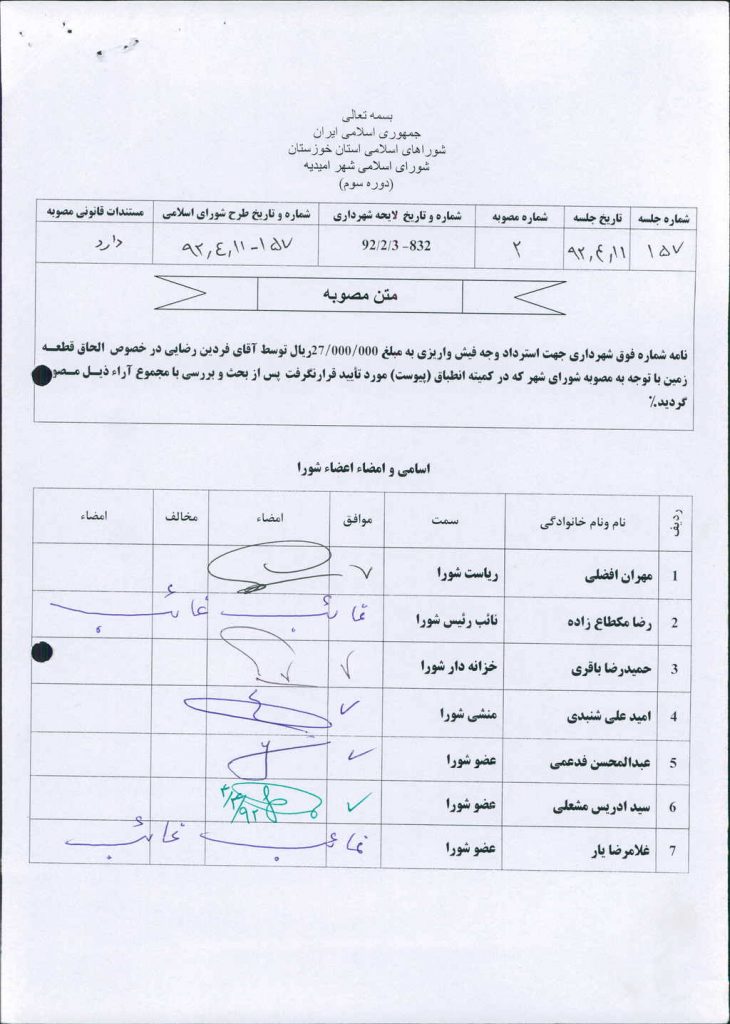 بسمه تعالی
جمهوری اسلامی ایران
شوراهای اسلامی استان خوزستان
شورای اسلامی شهر امیدیه
(دوره سوم)
شماره جلسه تاریخ جلسه شماره مصوبه شماره و تاریخ لایحه شهرداری شماره و تاریخ طرح شورای اسلامی مستندات قانونی مصوبه
۱۵۷ ۹۲,۴,۱۱ ۲ 832- 92/2/3 ۱۵۷-۹۲,۴,۱۱ دارد
متن مصوبه
نامه شماره فوق شهرداری جهت استرداد وجه فیش واریزی به مبلغ 27/000/000ریال توسط آقای فردین رضایی در خصوص الحاق قطعه
زمین با توجه به مصوبه شورای شهر که در کمیته انطباق (پیوست) مورد تأیید قرارنگرفت پس از بحث و بررسی با مجموع آراء ذیل
گردید.٪
اسامی و امضاء اعضاء شورا
ردیف نام ونام خانوادگی سمت موافق امضاء مخالف امضاء
1 مهران افضلی ریاست شورا ✓
2 رضا مکطاع زاده نائب رئیس شورا غائب غائب
3 حمیدرضا باقری خزانه دار شورا ✓
4 امید علی شنبدی منشی شورا ✓
5 عبدالمحسن فدعمی عضو شورا ✓
6 سید ادریس مشعلی عضو شورا ✓
7 غلامرضا یار عضو شورا غائب غائب